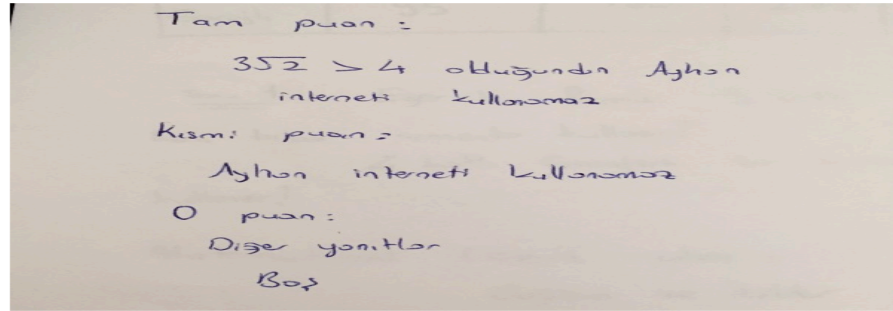 Tam puan :
3√2 > 4 olduğundan Ayhan
interneti kullanamaz
Kısmi puan :
Ayhan interneti kullanamaz
0 puan :
Diğer yanıtlar
Boş